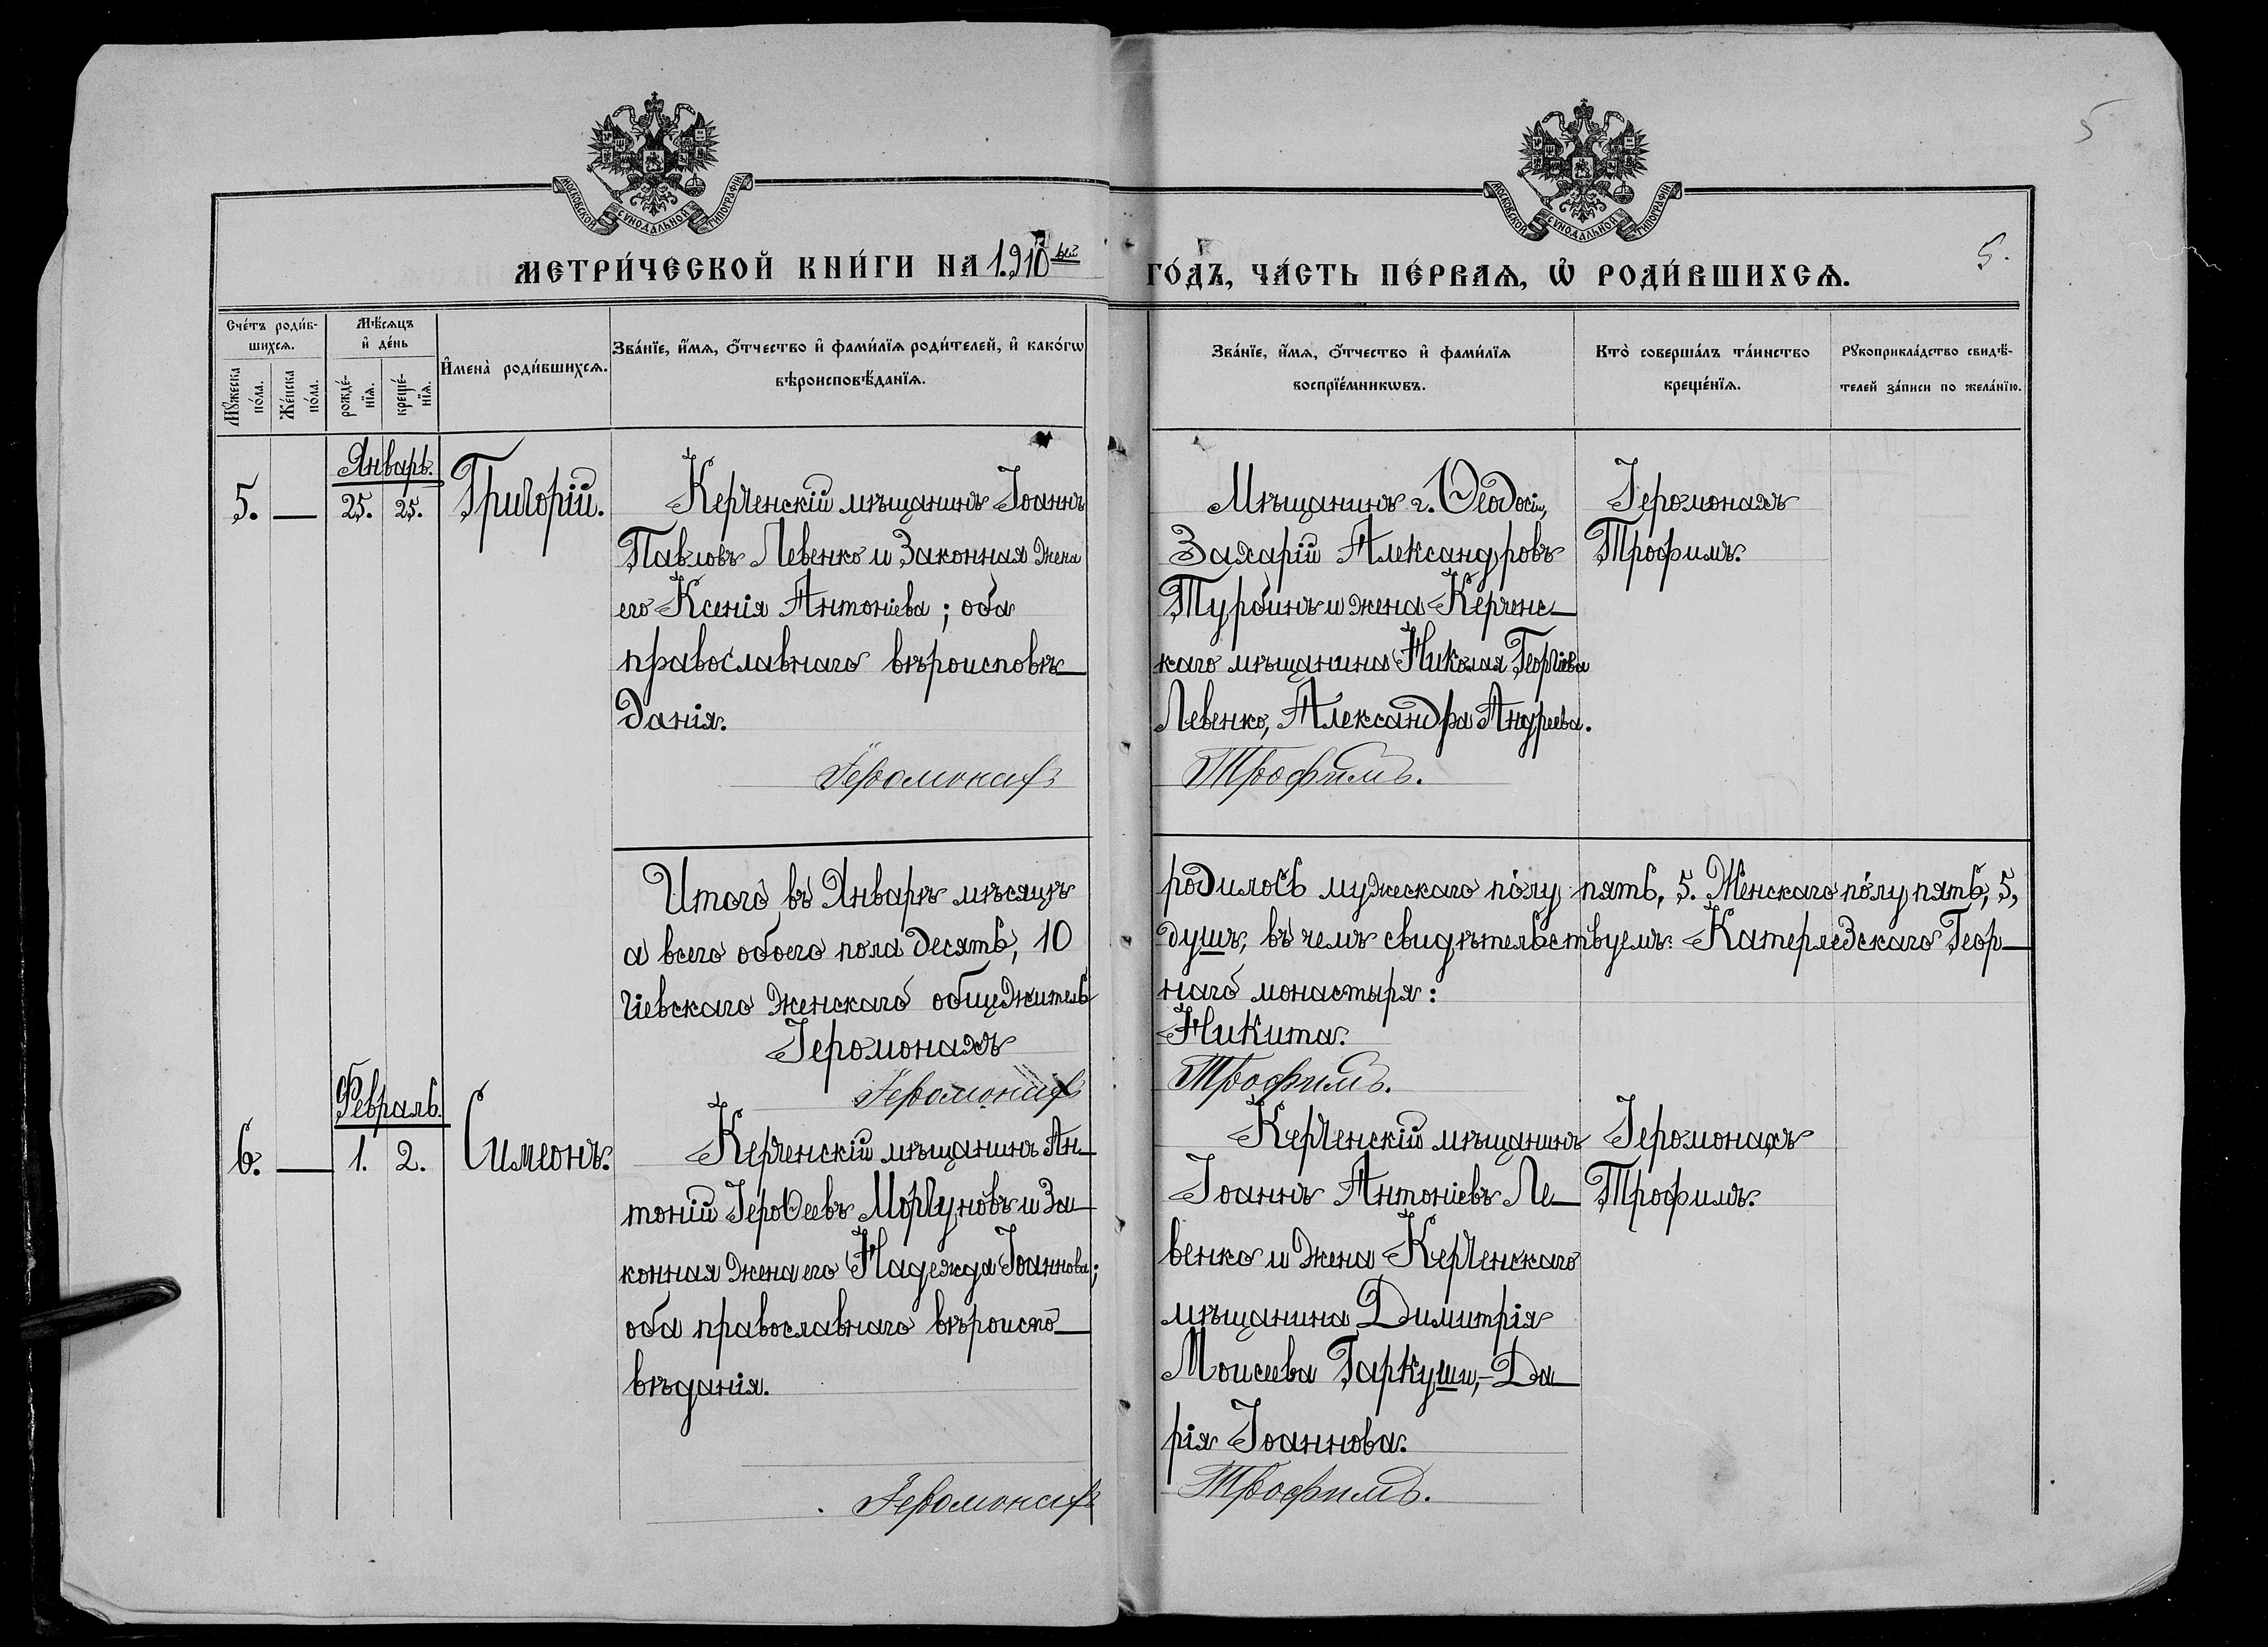 5
МОСКОВСКОЙ СѴНОДАЛЬНОЙ ТИПОГРАФІИ
МОСКОВСКОЙ СѴНОДАЛЬНОЙ ТИПОГРАФІИ
МЕТРИ́ЧЕСКОЙ КНИ́ГИ НА 1.910ый
ГО́ДЪ, ЧА́СТЬ ПЕ́РВАѦ, Ѡ҆ РОДИ́ВШИХСѦ.
5.
Сче́тъ роди́в-
шихсѧ.
Мꙋ́жеска
по́ла.
Же́нска
по́ла.
Мѣ́сѧцъ
и҆ де́нь
рожде́-
нїѧ.
креще́-
нїѧ.
И҆мена̀ роди́вшихсѧ.
Зва́нїе, и҆́мѧ, ѻ҆́тчество и҆ фами́лїѧ роди́телей, и҆ како́гѡ
вѣроисповѣ́данїѧ.
Зва́нїе, и҆́мѧ, ѻ҆́тчество и҆ фами́лїѧ
воспрїе́мникѡвъ.
Кто̀ соверша́лъ та́инство
креще́нїѧ.
Рꙋкоприкла́дство свидѣ́-
телей за́писи по жела́нїю.
Январь.
5. — 25. 25. Григорій.
Керченскій мѣщанинъ Іоаннъ
Павловъ Левенко и законная жена
его Ксенія Антоніева; оба
православнаго вѣроисповѣ-
данія.
Іеромонахъ
Мѣщанинъ г. Ѳеодосіи,
Захарій Александровъ
Турбинъ и жена Керченс-
каго мѣщанина Николая Георгіева
Левенко, Александра Андреева.
Трофимъ.
Іеромонахъ
Трофимъ.
Итого въ Январѣ мѣсяцѣ
родилось мужескаго полу пять, 5. Женскаго полу пять, 5,
а всего обоего пола десять, 10
душъ, въ чемъ свидѣтельствуемъ: Катерлезскаго Геор-
гіевскаго женскаго общежитель
наго монастыря:
Іеромонахъ
Никита.
Іеромонахъ
Трофимъ.
Февраль.
6. — 1. 2. Симеонъ.
Керченскій мѣщанинъ Ан-
тоній Іероѳеевъ Моргуновъ и за-
конная жена его Надежда Іоаннова;
оба православнаго вѣроиспо-
вѣданія.
Іеромонахъ
Керченскій мѣщанинъ
Іоаннъ Антоніевъ Ле-
венко и жена Керченскаго
мѣщанина Димитрія
Моисеева Гаркуши, - Да-
рія Іоаннова.
Трофимъ.
Іеромонахъ
Трофимъ.